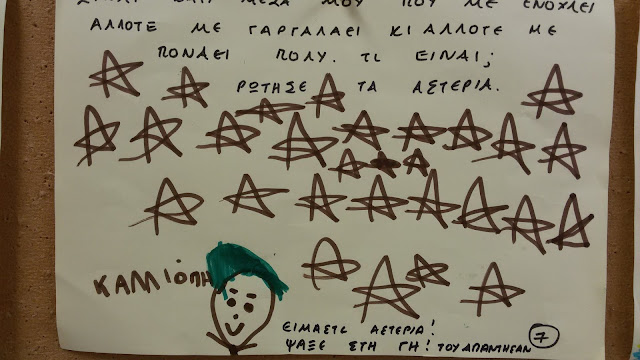 ΜΕΣΑ ΜΟΥ ΠΟΥ ΜΕ ΕΝΟΧΛΕΙ
ΑΛΛΟΤΕ ΜΕ ΓΑΡΓΑΛΑΕΙ ΚΙ ΑΛΛΟΤΕ ΜΕ
ΠΟΝΑΕΙ ΠΟΛΥ. ΤΙ ΕΙΝΑΙ;
ΡΩΤΗΣΕ ΤΑ ΑΣΤΕΡΙΑ.
ΚΑΛΛΙΟΠΗ
ΕΙΜΑΣΤΕ ΑΣΤΕΡΙΑ!
ΨΑΞΕ ΣΤΗ ΓΗ! ΤΟΥ ΑΠΑΝΤΗΣΑΝ
7